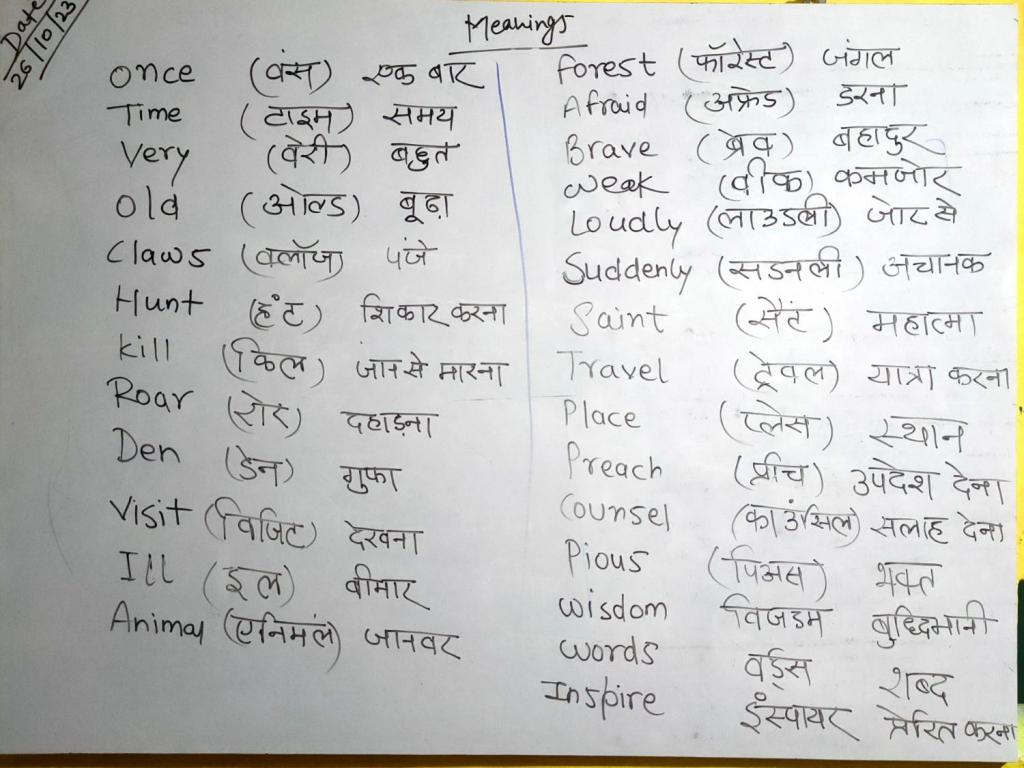 Date
26/10/23
Meanings
Once (वंस) एक बार
Time (टाइम) समय
Very (वेरी) बहुत
Old (ओल्ड) बूढ़ा
Claws (क्लॉज) पंजे
Hunt (हंट) शिकार करना
Kill (किल) जान से मारना
Roar (रोर) दहाड़ना
Den (डेन) गुफा
Visit (विजिट) देखना
Ill (इल) बीमार
Animal (एनिमल) जानवर
Forest (फॉरेस्ट) जंगल
Afraid (अफ्रेड) डरना
Brave (ब्रेव) बहादुर
Weak (वीक) कमजोर
Loudly (लाउडली) जोर से
Suddenly (सडनली) अचानक
Saint (सैंट) महात्मा
Travel (ट्रेवल) यात्रा करना
Place (प्लेस) स्थान
Preach (प्रीच) उपदेश देना
Counsel (काउंसिल) सलाह देना
Pious (पिअस) भक्त
Wisdom विजडम बुध्दिमानी
Words वर्ड्स शब्द
Inspire इंस्पायर प्रेरित करना